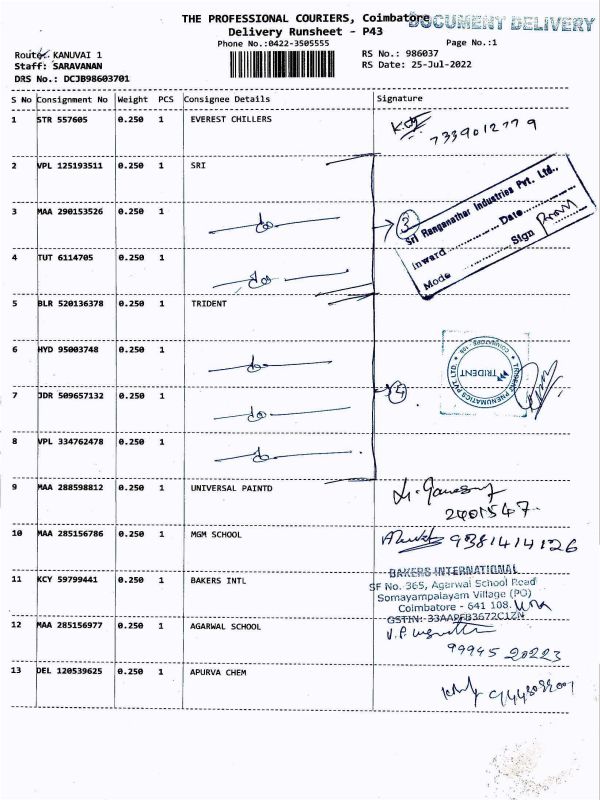 THE PROFESSIONAL COURIERS, Coimbatore
DOCUMENT DELIVERY
Delivery Runsheet - P43
Phone No.:0422-3505555
Page No.:1
Route: KANUVAI 1
RS No.: 986037
Staff: SARAVANAN
RS Date: 25-Jul-2022
DRS No.: DCJB98603701
S No Consignment No Weight PCS Consignee Details Signature
1 STR 557605 0.250 1 EVEREST CHILLERS
7339012779
2 VPL 125193511 0.250 1 SRI
3 MAA 290153526 0.250 1 do
3
Sri Ranganathar Industries Pvt. Ltd.,
Inward........ Date........
Mode........ Sign
4 TUT 6114705 0.250 1 do
5 BLR 520136378 0.250 1 TRIDENT
6 HYD 95003748 0.250 1 do
TRIDENT PNEUMATICS PVT LTD.
COIMBATORE
TRIDENT
7 JDR 509657132 0.250 1 do
4
8 VPL 334762478 0.250 1 do
9 MAA 288598812 0.250 1 UNIVERSAL PAINTD
2401547
10 MAA 285156786 0.250 1 MGM SCHOOL
9381414126
11 KCY 59799441 0.250 1 BAKERS INTL
BAKERS INTERNATIONAL
SF No. 365, Agarwal School Road
Somayampalayam Village (PO)
Coimbatore - 641 108.
GSTIN: 33AAPFB3672C1ZN
12 MAA 285156977 0.250 1 AGARWAL SCHOOL
99945 20223
13 DEL 120539625 0.250 1 APURVA CHEM